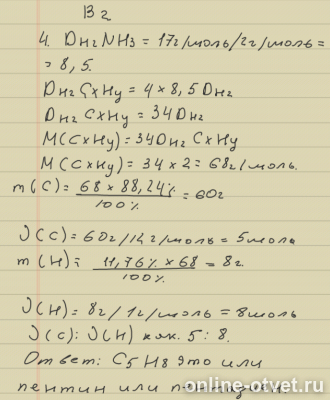 В 2
4. DH2 NH3 = 17г/моль/2г/моль =
= 8,5.
DH2 CxHy = 4 × 8,5 DH2
DH2 CxHy = 34DH2
M(CxHy) = 34DH2 CxHy
M(CxHy) = 34 × 2 = 68г/моль.
m(C) = 68 × 88,24% / 100% = 60г
ν(C) = 60г/12г/моль = 5моль
m(H) = 11,76% × 68 / 100% = 8г.
ν(H) = 8г/1г/моль = 8моль
ν(C) : ν(H) как 5 : 8.
Ответ: C5H8 это или
пентин или пентадиен.
online-otvet.ru